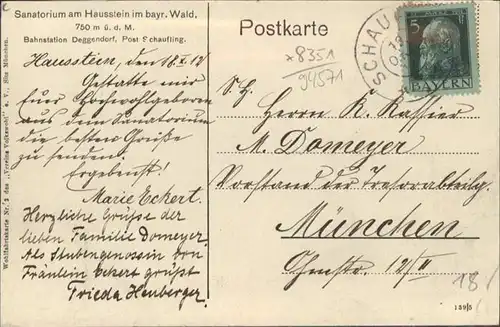 Sanatorium am Hausstein im bayr. Wald,
750 m ü. d. M.
Bahnstation Deggendorf, Post Schaufling.
Hausstein, den 18.X.12
Gestatte mir
Euer Hochwohlgeboren
aus dem Sanatorium
die besten Grüße
zu senden.
Ergebenst!
Marie Eckert.
Herzliche Grüsse der
lieben Familie Domeyer.
Als Stubengenossin von
Fräulein Eckert grüßt
Frieda Heuberger.
Wohlfahrtskarte Nr. 2 des „Vereins Volkswohl" e. V., Sitz München.
Postkarte
*8351
94571
SCHAU
5
BAYERN
S. H.
Herrn K. Kassier
M. Domeyer
Vorstand der Tresorabteilg
München
Ohmstr. 12/II
18/
159/5